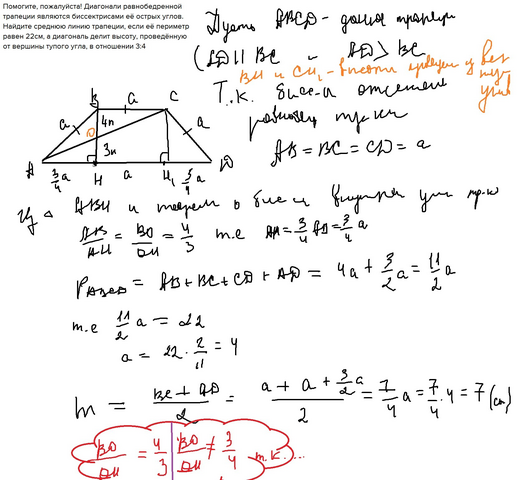 Помогите, пожалуйста! Диагонали равнобедренной
трапеции являются биссектрисами её острых углов.
Найдите среднюю линию трапеции, если её периметр
равен 22см, а диагональ делит высоту, проведённую
от вершины тупого угла, в отношении 3:4
Пусть ABCD - данная трапеция
(AD || BC и AD > BC
BH и CH₁ - высоты
Т.к. бисс-и отсекают
равнобед тр-ки
AB = BC = CD = a
B a C
a 4n a
O
3n
A H a H₁ D
3/4 a 3/4 a
Из Δ ABH и теорем о бис-и внутрен угла тр-ка
AB/AH = BO/OH = 4/3 т.е AH = 3/4 AB = 3/4 a
P ABCD = AB + BC + CD + AD = 4a + 3/2 a = 11/2 a
т.е 11/2 a = 22
a = 22 · 2/11 = 4
m = BC + AD / 2 = a + a + 3/2 a / 2 = 7/4 a = 7/4 · 4 = 7 (см)
BO/OH = 4/3 BO/OH ≠ 3/4 т.к. ...